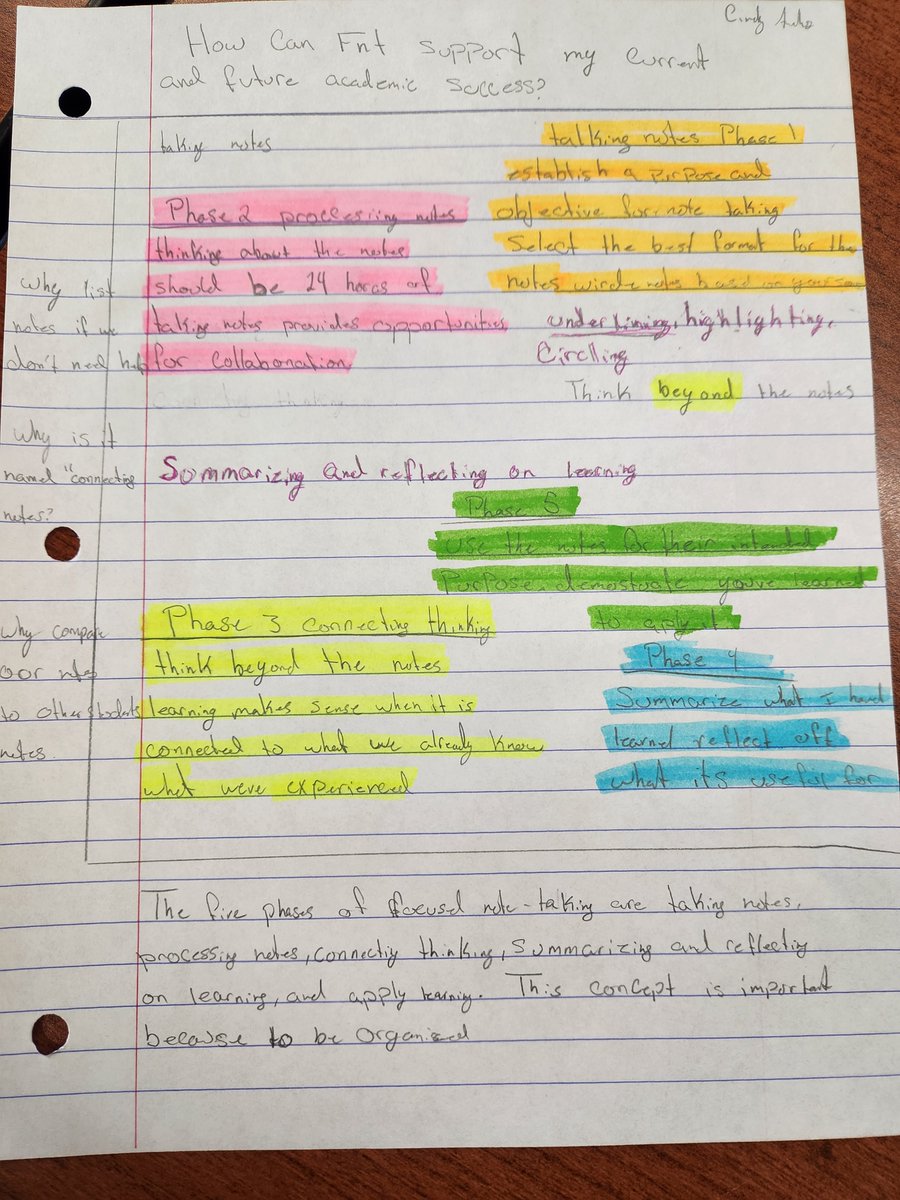 Cindy
How Can Fnt support my current
and future academic success?
taking notes
talking notes Phase 1
establish a pirpose and
objective for note taking
Select the best format for the
notes
Phase 2 processing notes
thinking about the notes
should be 24 horas of
taking notes provides opportunities
for collabonation
underlinning, highlighting,
Circling
Think beyond the notes
Why list
notes if we
don't need help
Why is it
named "connecting
notes?
Summarizing and reflecting on learning
Phase 5
Use the notes for their intended
Purpose demostrate youve learned
to apply it
Phase 3 connecting thinking
think beyond the notes
learning makes sense when it is
connected to what we already know
what weve experiened
Phase 4
Summarize what I have
learned reflect off
what its useful for
Why compare
oor notes
to other students
notes.
The five phases of focused note-taking are taking notes,
processing notes, connectiy thinking, summarizing and reflecting
on learning, and apply learning. This concept is important
because to be organized